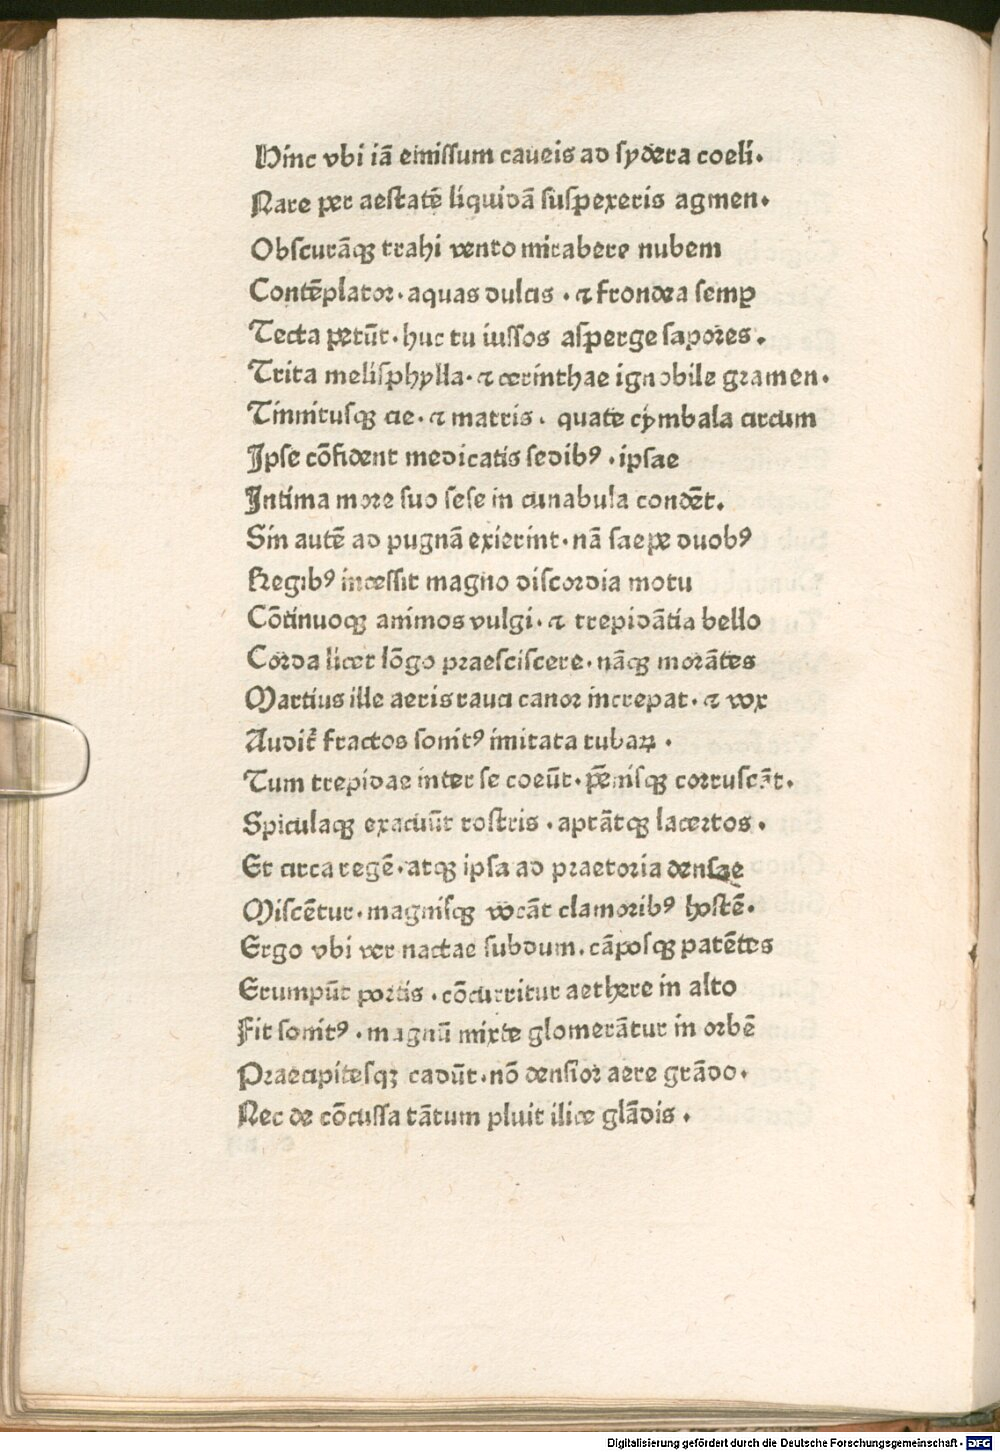 Hinc vbi iā emissum caueis ad sydera coeli.
Nare per aestatē liquidā suspexeris agmen.
Obscurāqꝫ trahi vento mirabere nubem
Contēplator. aquas dulcis. ⁊ frondea semꝑ
Tecta petūt. huc tu iussos asperge sapores.
Trita melisphylla. ⁊ cerinthae ignobile gramen.
Tinnitusqꝫ cie. ⁊ matris. quate cymbala circum
Ipse cōfident medicatis sedibꝰ. ipsae
Intima more suo sese in cunabula condēt.
Sin autē ad pugnā exierint. nā saepe duobꝰ
Regibꝰ incessit magno discordia motu
Cōtinuoqꝫ animos vulgi. ⁊ trepidātia bello
Corda licet lōgo praesciscere. nāqꝫ morātes
Martius ille aeris rauci canor increpat. ⁊ vox
Audit̄ fractos sonitꝰ imitata tubaꝝ.
Tum trepidae inter se coeūt. pēnisqꝫ corruscāt.
Spiculaqꝫ exacuūt rostris. aptātqꝫ lacertos.
Et circa regē. atqꝫ ipsa ad praetoria densae
Miscētur. magnisqꝫ vocāt clamoribꝰ hostē.
Ergo vbi ver nactae subdum. cāposqꝫ patētes
Erumpūt portis. cōcurritur aethere in alto
Fit sonitꝰ. magnū mixte glomerātur in orbē
Praecipitesqꝫ cadūt. nō densior aere grādo.
Nec de cōcussa tātum pluit ilice glādis.
Digitalisierung gefördert durch die Deutsche Forschungsgemeinschaft - DFG